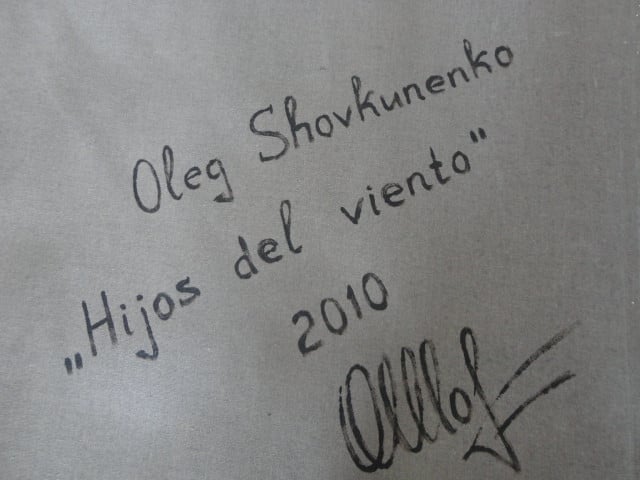 Oleg Shovkunenko
„Hijos del viento"
2010